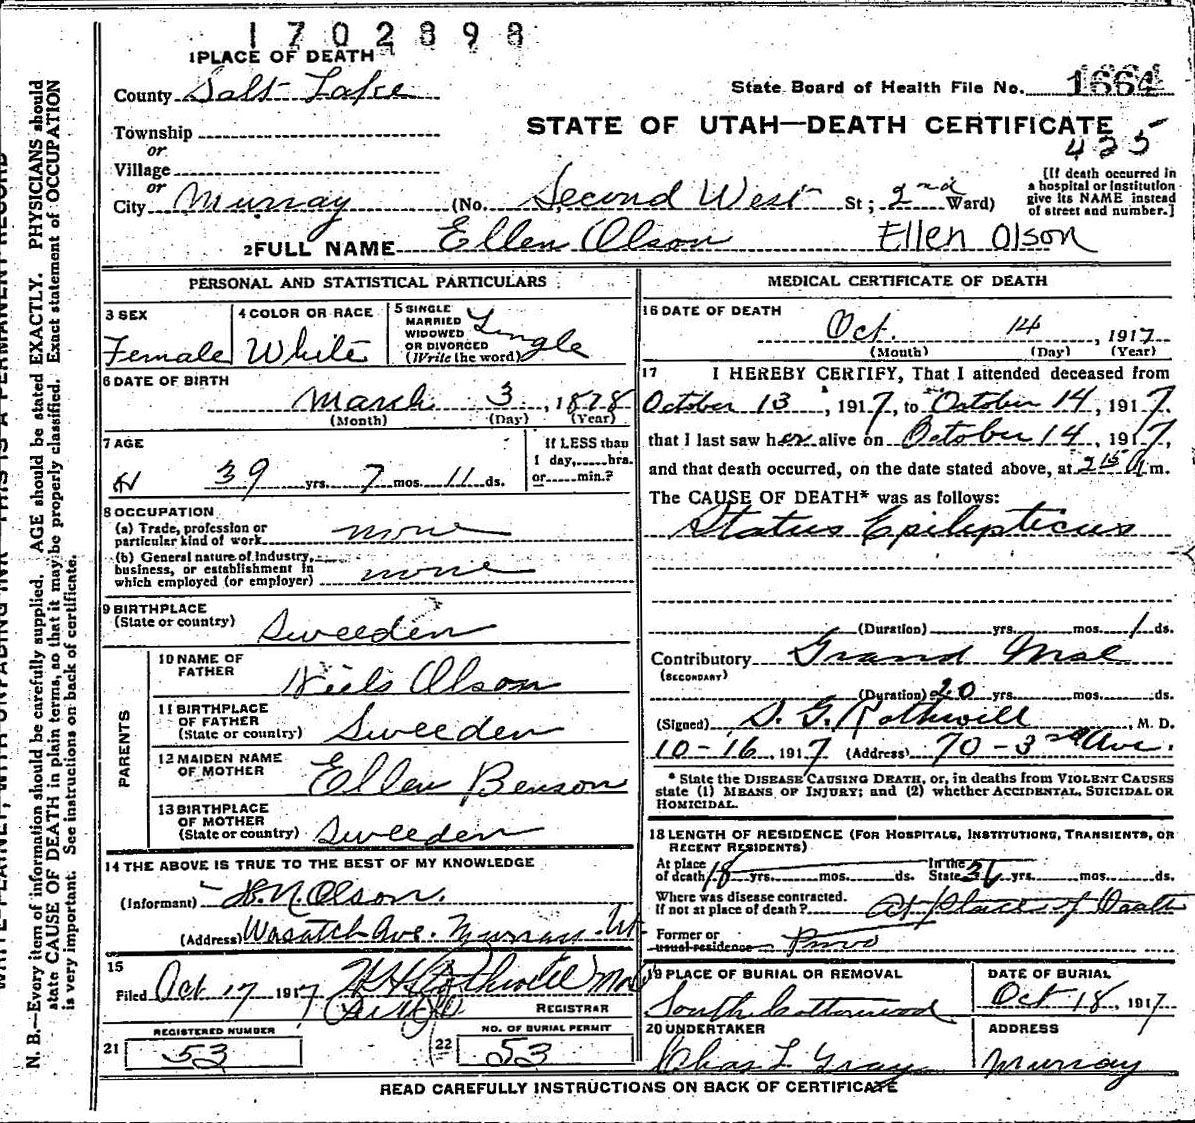 1702898
1 PLACE OF DEATH
County Salt Lake
State Board of Health File No. 1664
Township
or
Village
or
City Murray
STATE OF UTAH—DEATH CERTIFICATE
425
(No. Second West St; 2nd Ward)
[If death occurred in
a hospital or institution
give its NAME instead
of street and number.]
2 FULL NAME Ellen Olson Ellen Olson
PERSONAL AND STATISTICAL PARTICULARS
3 SEX
Female
4 COLOR OR RACE
White
5 SINGLE
MARRIED
WIDOWED
OR DIVORCED
(Write the word)
Single
6 DATE OF BIRTH
March 3, 1878
(Month) (Day) (Year)
7 AGE
39 yrs. 7 mos. 11 ds.
If LESS than
1 day, hrs.
or min.?
8 OCCUPATION
(a) Trade, profession or
particular kind of work none
(b) General nature of Industry,
business, or establishment in
which employed (or employer) none
9 BIRTHPLACE
(State or country) Sweeden
PARENTS
10 NAME OF
FATHER Niels Olson
11 BIRTHPLACE
OF FATHER
(State or country) Sweeden
12 MAIDEN NAME
OF MOTHER Ellen Benson
13 BIRTHPLACE
OF MOTHER
(State or country) Sweeden
14 THE ABOVE IS TRUE TO THE BEST OF MY KNOWLEDGE
(Informant) N. Olson.
(Address) Wasatch Ave. Murray Ut
15
Filed Oct 17, 1917 Rothwell
REGISTRAR
REGISTERED NUMBER
21 53
NO. OF BURIAL PERMIT
22 53
MEDICAL CERTIFICATE OF DEATH
16 DATE OF DEATH
Oct. 14, 1917
(Month) (Day) (Year)
17 I HEREBY CERTIFY, That I attended deceased from
October 13, 1917, to October 14, 1917,
that I last saw her alive on October 14, 1917,
and that death occurred, on the date stated above, at 2 15 A m.
The CAUSE OF DEATH* was as follows:
Status Epilypticus
(Duration) yrs. mos. 1 ds.
Contributory Grand Mal
(SECONDARY)
(Duration) 20 yrs. mos. ds.
(Signed) Rothwell, M. D.
10-16, 1917 (Address) 70-3rd Ave.
* State the DISEASE CAUSING DEATH, or, in deaths from VIOLENT CAUSES
state (1) MEANS OF INJURY; and (2) whether ACCIDENTAL, SUICIDAL OR
HOMICIDAL.
18 LENGTH OF RESIDENCE (FOR HOSPITALS, INSTITUTIONS, TRANSIENTS, OR
RECENT RESIDENTS)
At place
of death 18 yrs. mos. ds. In the
State yrs. mos. ds.
Where was disease contracted.
If not at place of death? At place of Death
Former or
usual residence Provo
19 PLACE OF BURIAL OR REMOVAL
South Cottonwood
DATE OF BURIAL
Oct 18, 1917
20 UNDERTAKER
Chas L Gray
ADDRESS
Murray
READ CAREFULLY INSTRUCTIONS ON BACK OF CERTIFICATE
N. B.—Every item of information should be carefully supplied. AGE should be stated EXACTLY. PHYSICIANS should
state CAUSE OF DEATH in plain terms, so that it may be properly classified. Exact statement of OCCUPATION
is very important. See instructions on back of certificate.